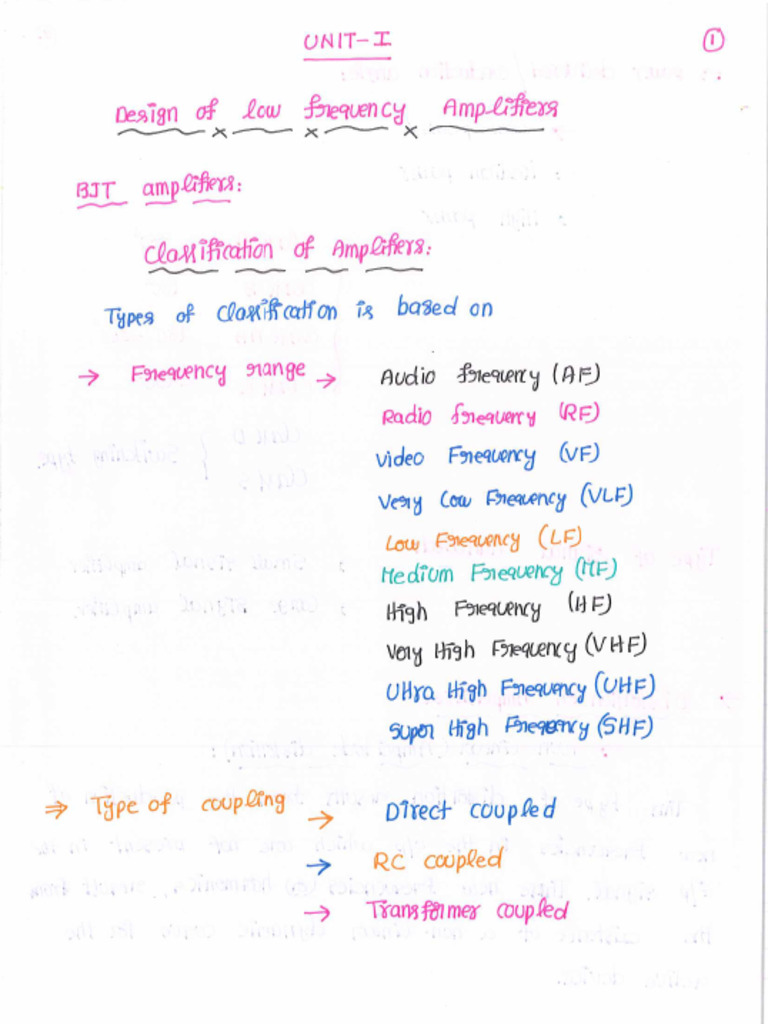 UNIT-I
1
Design of low frequency Amplifiers
BJT amplifiers:
Classification of Amplifiers:
Types of classification is based on
→ Frequency range → Audio frequency (AF)
Radio frequency (RF)
Video Frequency (VF)
Very Low Frequency (VLF)
Low Frequency (LF)
Medium Frequency (MF)
High Frequency (HF)
Very High Frequency (VHF)
Ultra High Frequency (UHF)
Super High Frequency (SHF)
⇒ Type of coupling → Direct coupled
→ RC coupled
→ Transformer coupled